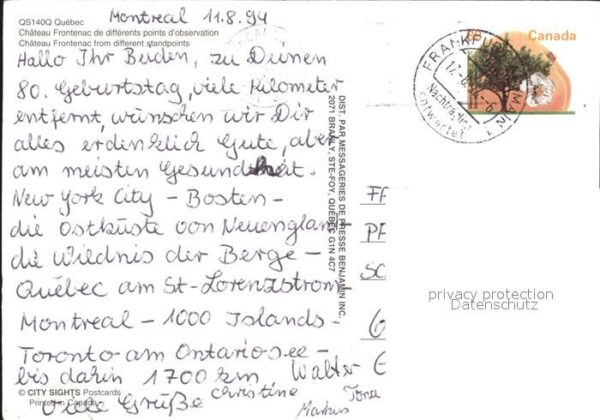 Montreal 11.8.94
QS140Q Québec
Château Frontenac de différents points d'observation
Château Frontenac from different standpoints
Hallo Ihr Beiden, zu Deinen
80. Geburtstag, viele Kilometer
entfernt, wünschen wir Dir
alles erdenklich Gute, aber
am meisten Gesundheit.
New York City - Boston -
die Ostküste von Neuengland -
die Wiednis der Berge -
Québec am St-Lorenzstrom
Montreal - 1000 Islands -
Toronto am Ontariosee -
bis dahin 1700 km
Viele Grüße
Walter
Christine
Markus
© CITY SIGHTS Postcards
Printed in Canada
DIST. PAR MESSAGERIES DE PRESSE BENJAMIN INC.
2071 BRANLY, STE-FOY, QUÉBEC G1N 4C7
Canada
FRANKFURT MAIN 1
Nachträglich
entwertet
FR
SC
privacy protection
Datenschutz